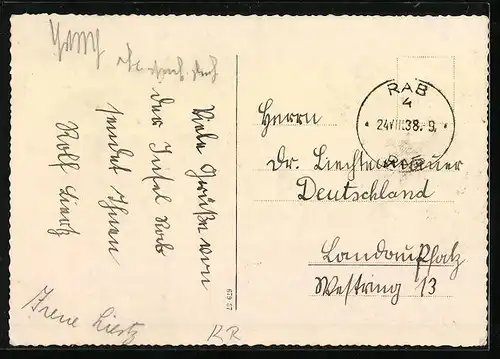 Viele Grüße von
der Insel Rab
sendet Ihnen
Rolf Liertz
Irene Liertz
KR
679 07
RAB
4
24VIII.38.9.
Herrn
Dr. Liechtenauer
Deutschland
Landau Pfalz
Westring 13